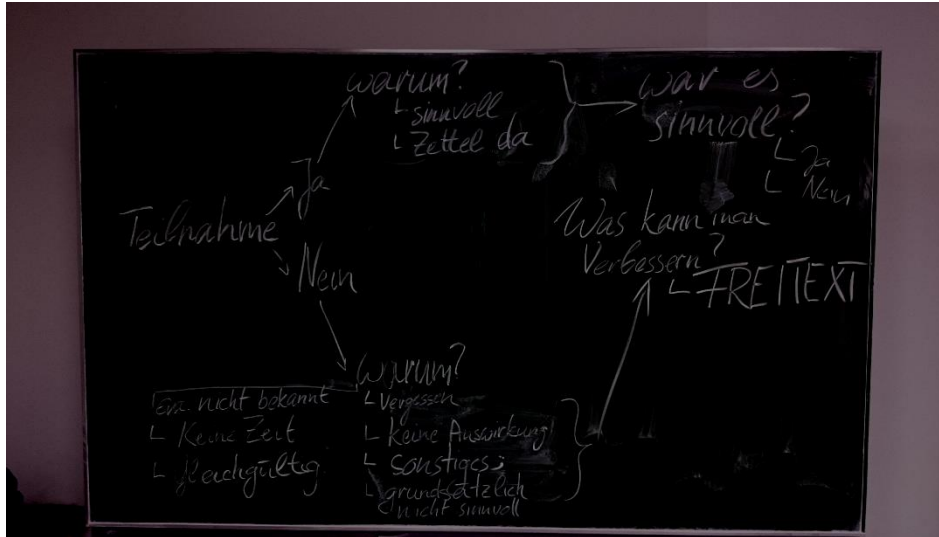 warum?
└ sinnvoll
└ Zettel da
war es
sinnvoll?
└ Ja
└ Nein
Ja
Teilnahme
Nein
Was kann man
Verbessern?
└ FREITEXT
warum?
nicht bekannt
└ Keine Zeit
└ Gleichgültig
└ Vergessen
└ keine Auswirkung
└ Sonstiges
└ grundsätzlich
nicht sinnvoll